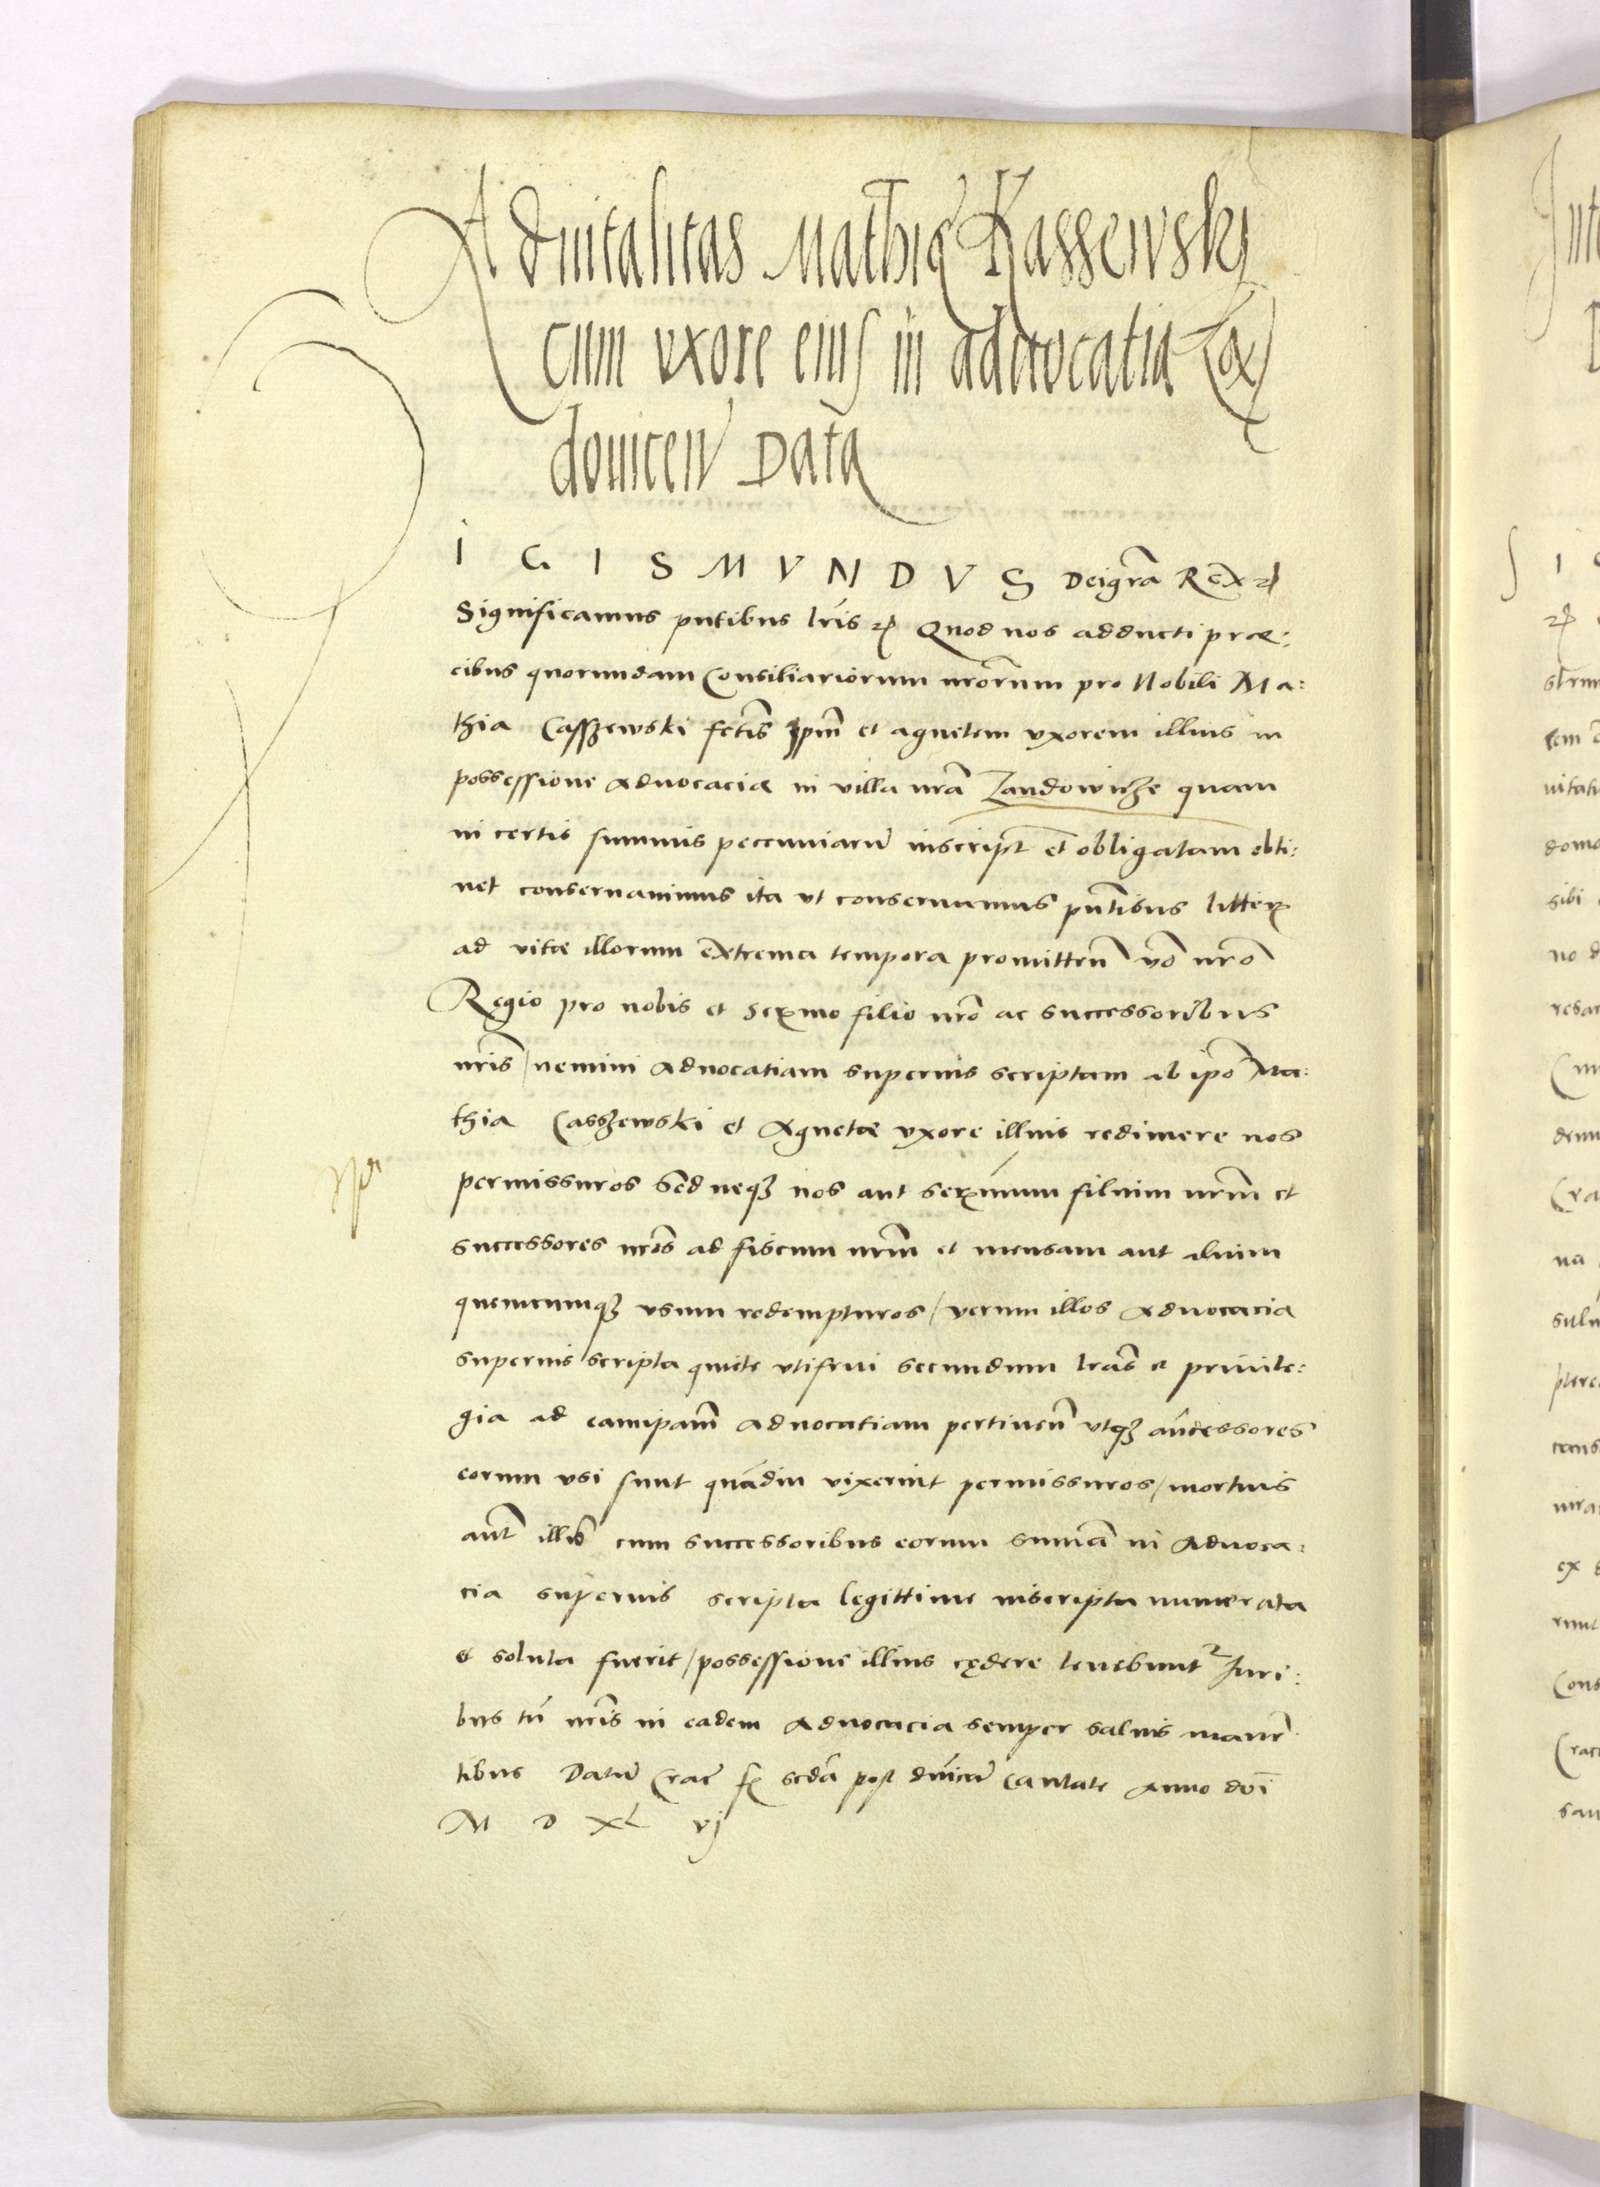 Aduitalitas Mathię Kassewskj
cum vxore eius in aduocatia Zą
douicen Data
IGISMVNDVS Dei gra͞ Rex ⁊c
Significamus pn͞tibus lr͞is ⁊c Quod nos adducti præ:
cibus quorundam Consiliariorum nr͞orum pro Nobili Ma:
thia Casszewski fct͞is ip͞m et agnetem vxorem illius in
possessione aduocaciæ in villa nr͞a Zandowicze quam
in certis summis peccuniaru͞ inscript͞ et obligatam obti:
net conseruauimus ita vt conseruamus pn͞tibus litteris
ad vitæ illorum extrema tempora promitten͞ vb͞o nr͞o
Regio pro nobis et Serm͞o filio nr͞o ac successoribus
nr͞is / nemini aduocatiam superius scriptam ab ip͞o Ma:
thia Casszewski et Agnetæ vxore illius redimere nos
permissuros Sed neqꝫ nos aut serm͞um filium nr͞m et
successores nr͞os ad fiscum nr͞m et mensam aut alium
quemcumqꝫ vsum redempturos / verum illos aduocacia
superius scripta quiete vtifrui secundum lr͞as et priuile:
gia ad eamipam͞ aduocatiam pertinen͞ vtqꝫ an͞cessores
eorum vsi sunt qua͞diu vixerint permissuros / mortuis
aut͞ illis cum successoribus eorum summa͞ in aduoca:
cia superius scripta legittime inscripta numerata
et soluta fuerit / possessione illius cędere tenebunt᷑ Juri:
bus tn͞ nr͞is in eadem aduocacia semper saluis manen͞
tibus Datu͞ Crac͞ fe͞ scda͞ post dn͞icam Cantate Anno dn͞i
M D XL vj